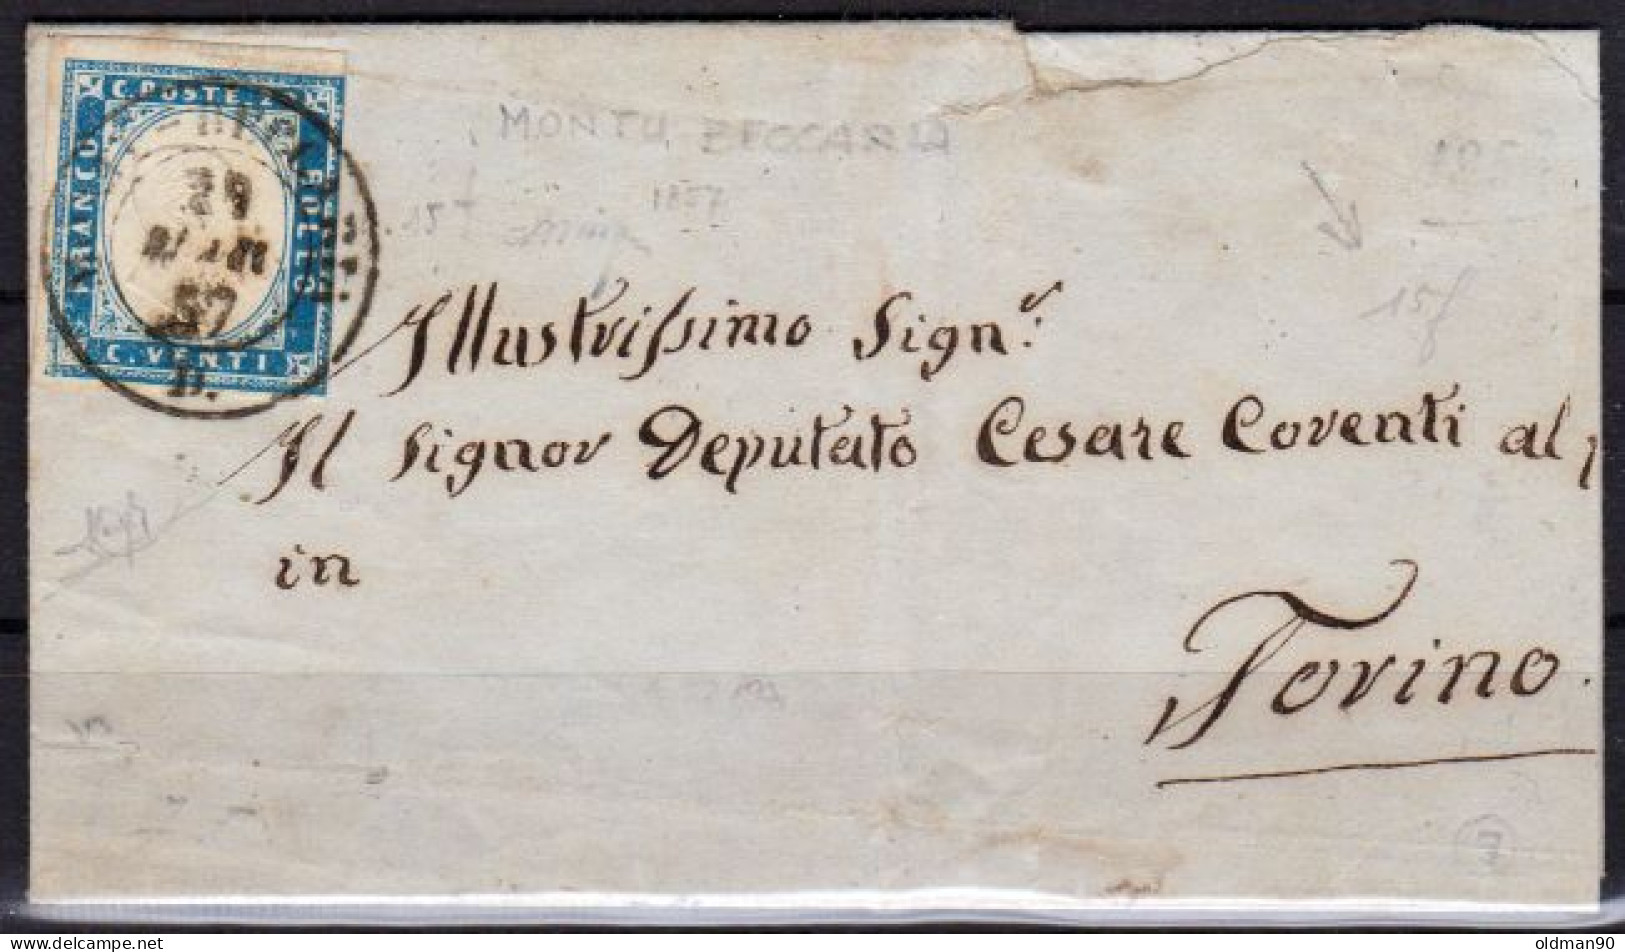 C. POSTE. 20
FRANCO
BOLLO
C. VENTI
29
57
B.
MONTU BECCARIA
1857
15
Illustrissimo Sign.r
Il Signor Deputato Cesare Coventi al
in
Torino.
15
7
oldman90